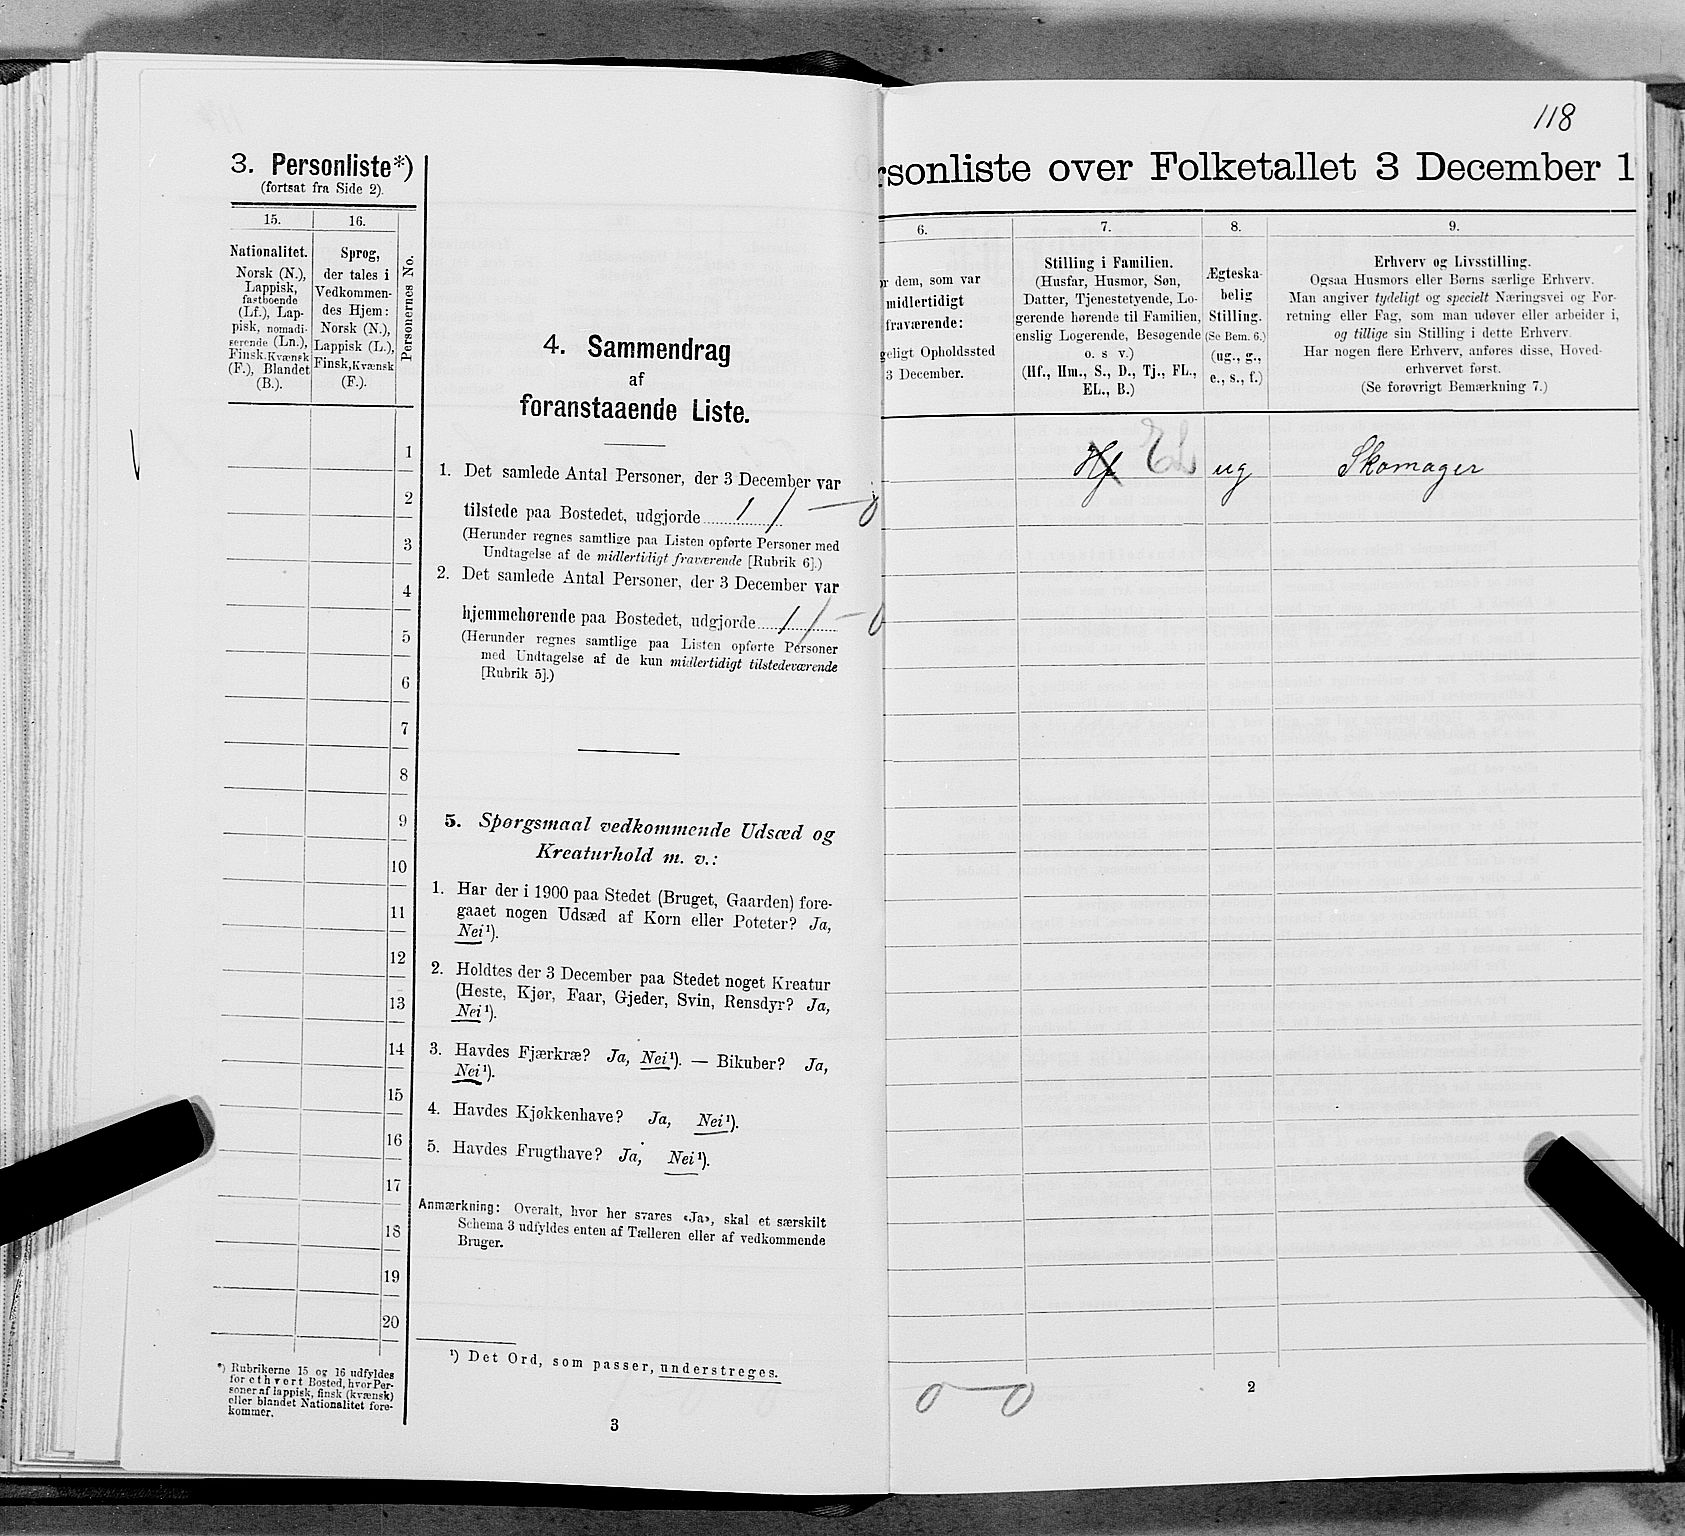 3. Personliste*)
(fortsat fra Side 2).
15.
16.
Nationalitet.
Norsk (N.),
Lappisk,
fastboende
(Lf.), Lap-
pisk, nomadi-
serende (Ln.),
Finsk, Kvænsk
(F.), Blandet
(B.).
Sprog,
der tales i
Vedkommen-
des Hjem:
Norsk (N.),
Lappisk (L.),
Finsk, Kvænsk
(F.).
Personernes No.
1
2
3
4
5
6
7
8
9
10
11
12
13
14
15
16
17
18
19
20
*) Rubrikerne 15 og 16 udfyldes
for ethvert Bosted, hvor Per-
soner af lappisk, finsk (kvænsk)
eller blandet Nationalitet fore-
kommer.
4. Sammendrag
af
foranstaaende Liste.
1. Det samlede Antal Personer, der 3 December var
tilstede paa Bostedet, udgjorde 1 1 — 0
(Herunder regnes samtlige paa Listen opførte Personer med
Undtagelse af de midlertidigt fraværende [Rubrik 6].)
2. Det samlede Antal Personer, der 3 December var
hjemmehørende paa Bostedet, udgjorde 1 1 — 0
(Herunder regnes samtlige paa Listen opførte Personer
med Undtagelse af de kun midlertidigt tilstedeværende
[Rubrik 5].)
5. Spørgsmaal vedkommende Udsæd og
Kreaturhold m. v.:
1. Har der i 1900 paa Stedet (Bruget, Gaarden) fore-
gaaet nogen Udsæd af Korn eller Poteter? Ja,
Nei¹).
2. Holdtes der 3 December paa Stedet noget Kreatur
(Heste, Kjør, Faar, Gjeder, Svin, Rensdyr? Ja,
Nei¹).
3. Havdes Fjærkræ? Ja, Nei¹). — Bikuber? Ja,
Nei¹).
4. Havdes Kjøkkenhave? Ja, Nei¹).
5. Havdes Frugthave? Ja, Nei¹).
Anmærkning: Overalt, hvor her svares «Ja», skal et særskilt
Schema 3 udfyldes enten af Tælleren eller af vedkommende
Bruger.
¹) Det Ord, som passer, understreges.
3
118
rsonliste over Folketallet 3 December 1
6.
7.
8.
9.
r dem, som var
midlertidigt
fraværende:
geligt Opholdssted
3 December.
Stilling i Familien.
(Husfar, Husmor, Søn,
Datter, Tjenestetyende, Lo-
gerende hørende til Familien,
enslig Logerende, Besøgende
o. s v.)
(Hf., Hm., S., D., Tj., FL.,
EL., B.)
Ægteska-
belig
Stilling.
(Se Bem. 6.)
(ug., g.,
e., s., f.)
Erhverv og Livsstilling.
Ogsaa Husmors eller Børns særlige Erhverv.
Man angiver tydeligt og specielt Næringsvei og For-
retning eller Fag, som man udøver eller arbeider i,
og tillige sin Stilling i dette Erhverv.
Har nogen flere Erhverv, anføres disse, Hoved-
erhvervet først.
(Se forøvrigt Bemærkning 7.)
Hf EL ug Skomager
0 — 0
2